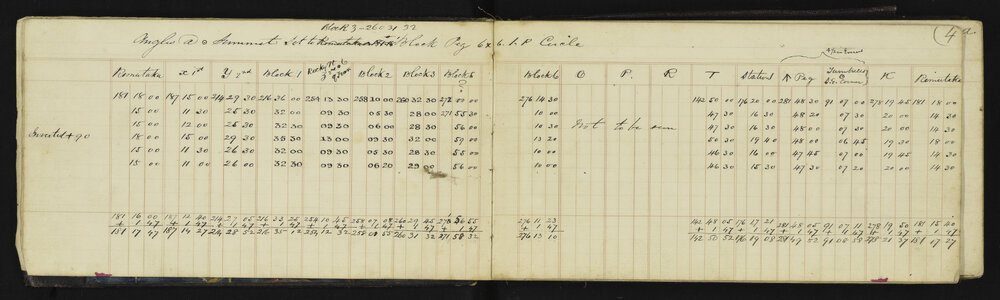 Block 3 - 260 31 32
Angles @ Summit Set to Rimutaka Block Peg 6 x 6. 1. P Circle
4
Rimutaka x 1st y 2nd Block 1 Rocky Pt Block 2 Block 3 Block 5 Block 6 O P. R T Station 1 A Peg Trimbles S.E. Corner K Rimutaka
181 18 00 187 15 00 214 29 30 216 36 00 254 13 30 258 10 00 260 32 30 272 00 00 276 14 30 142 50 00 176 20 00 281 48 30 91 07 00 278 19 45 181 18 00
15 00 11 30 25 30 32 00 09 30 06 30 28 00 271 55 30 10 00 47 30 16 30 48 20 07 30 20 00 14 30
15 00 12 00 25 00 32 30 09 30 06 00 28 30 56 00 10 30 Not to be seen 47 30 16 30 48 00 07 30 20 00 14 30
Inverted + 90 18 00 15 00 29 30 35 30 13 30 09 30 32 00 59 00 13 20 50 30 19 40 48 00 06 45 19 30 18 00
15 00 11 30 26 00 32 30 09 30 05 30 28 30 55 00 10 00 46 30 16 00 47 45 07 00 19 45 14 30
15 00 11 30 26 00 32 30 09 30 06 20 29 00 56 00 10 00 46 30 15 30 47 30 07 20 20 00 14 30
181 16 00 187 12 40 214 27 05 216 33 25 254 10 45 258 07 08 260 29 45 276 11 23 142 48 05 176 17 21 281 48 05 91 07 11 278 19 50 181 15 40
+ 1 47 + 1 47 + 1 47 + 1 47 + 1 47 + 1 47 + 1 47 + 1 47 + 1 47 + 1 47 + 1 47 + 1 47 + 1 47 + 1 47 + 1 47
181 17 47 187 14 27 214 28 52 216 35 12 254 12 32 258 08 55 260 31 32 271 58 32 276 13 10 142 50 52 176 19 08 281 49 52 91 08 58 278 21 37 181 17 27